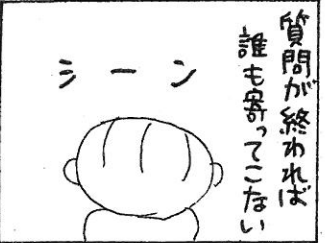 質問が終われば
誰も寄ってこない
シーン